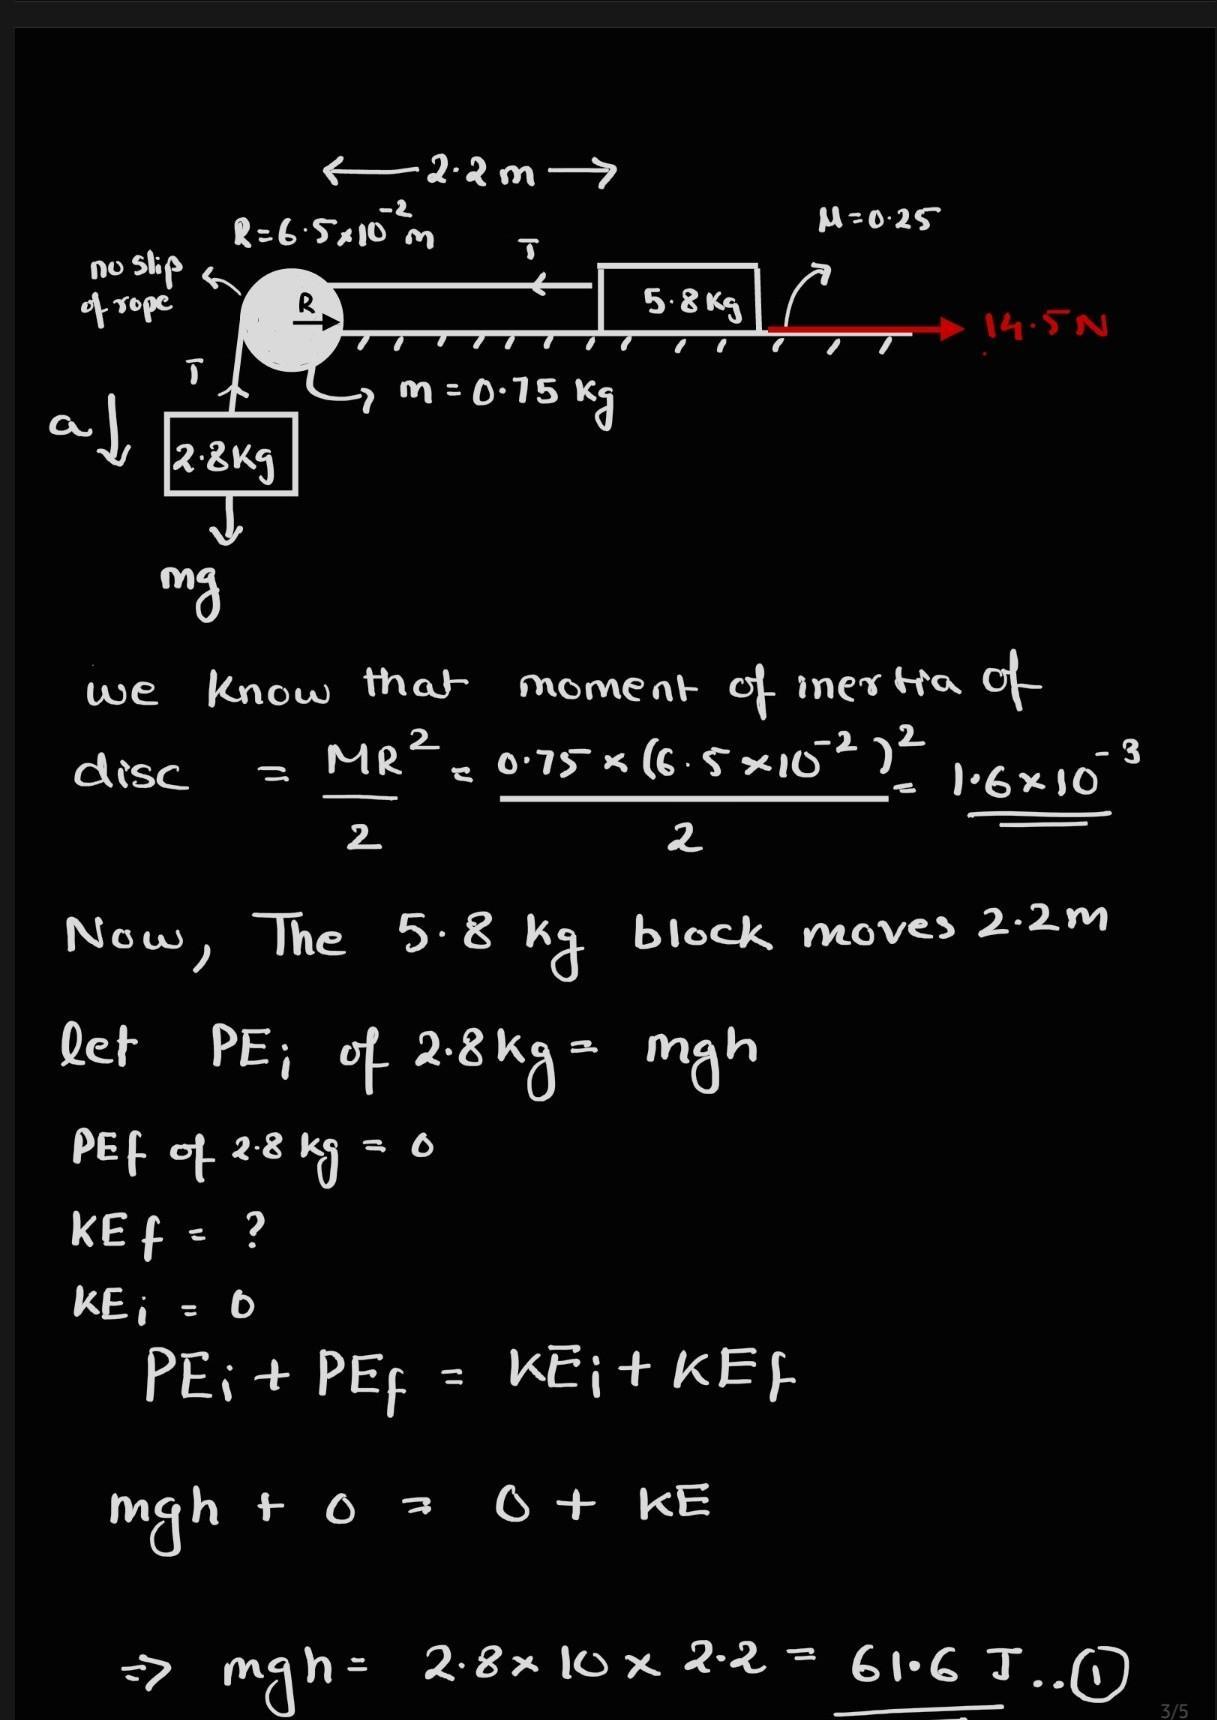 2.2 m
R=6.5×10⁻² m
μ=0.25
no slip
of rope
T
R
5.8 Kg
14.5 N
T
m = 0.75 Kg
a
2.8Kg
mg
we know that moment of inertia of
disc = MR²/2 = 0.75 × (6.5 ×10⁻²)²/2 = 1.6×10⁻³
Now, The 5.8 kg block moves 2.2m
let PEi of 2.8kg = mgh
PEf of 2.8 kg = 0
KE f = ?
KE i = 0
PEi + PEf = KEi + KEf
mgh + 0 = 0 + KE
⇒ mgh = 2.8× 10 × 2.2 = 61.6 J ..①
3/5